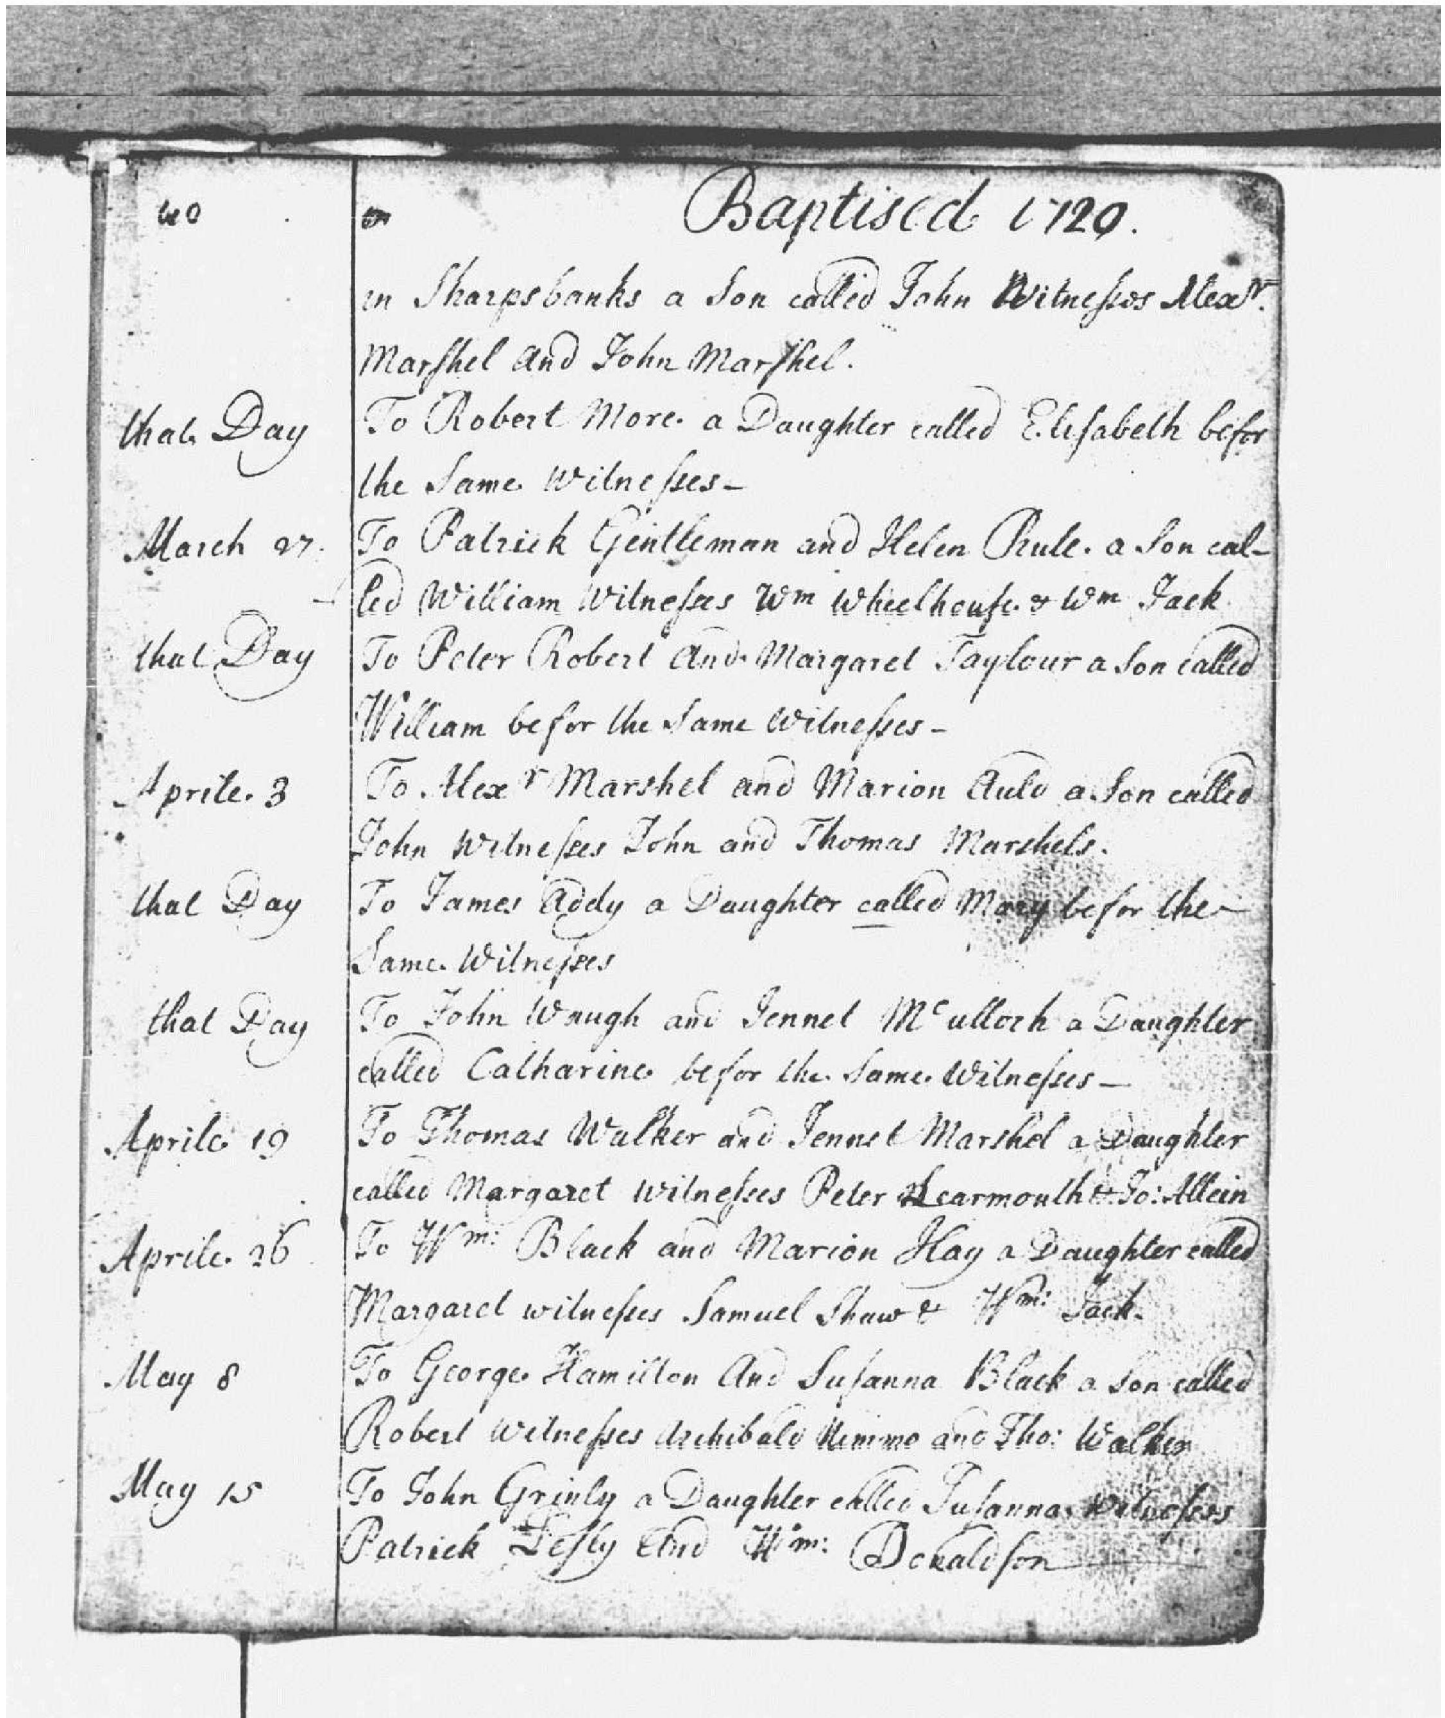 40 Baptised 1720.
in Sharpsbanks a Son called John Witnesses Alexr.
Marshel and John Marshel.
that Day To Robert More a Daughter called Elisabeth befor
the Same Witnesses-
March 27. To Patrick Gentleman and Helen Rule a Son cal-
led William Witnesses Wm Wheelhouse & Wm Jack
that Day To Peter Robert And Margaret Taylour a Son called
William befor the Same Witnesses-
Aprile 3 To Alexr Marshel and Marion Auld a Son called
John Witnesses John and Thomas Marshels.
that Day To James Addy a Daughter called Mary befor the
Same Witnesses
that Day To John Waugh and Jennet Mcculloch a Daughter
called Catharine befor the Same Witnesses-
Aprile 19 To Thomas Walker and Jennet Marshel a Daughter
called Margaret Witnesses Peter Learmouth & Jo: Allein
Aprile 26 To Wm: Black and Marion Hay a Daughter called
Margaret witnesses Samuel Shaw & Wm: Jack.
May 8 To George Hamilton And Susanna Black a Son called
Robert Witnesses Archibald Nimmo and Tho: Walker
May 15 To John Grinly a Daughter called Susanna Witnesses
Patrick And Wm: Donaldson